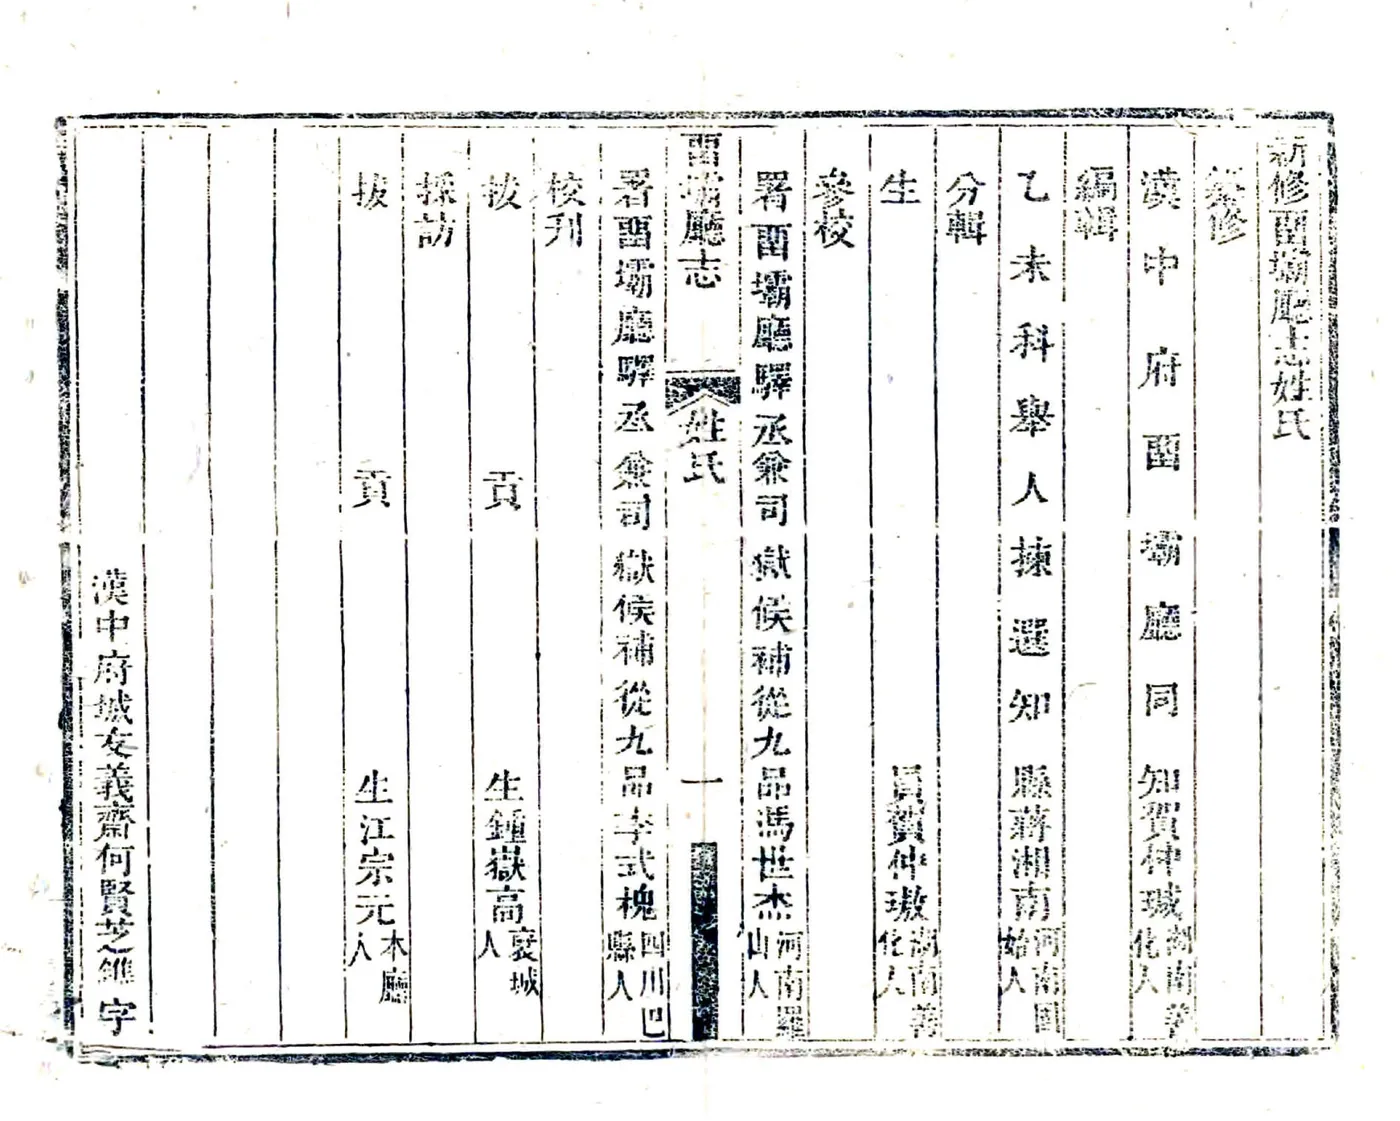 新修畱壩廳志姓氏
纂修
漢中府畱壩廳同知賀仲瑊湖南善化人
編輯
乙未科舉人揀選知縣蔣湘南河南固始人
分輯
生員賀仲璈湖南善化人
參校
署畱壩廳驛丞兼司獄候補從九品馮世杰河南羅山人
畱壩廳志 姓氏 一
署畱壩廳驛丞兼司獄候補從九品李式槐四川巴縣人
校刋
拔貢生鍾嶽高襃城人
採訪
拔貢生江宗元本廳人
漢中府城友義齋何賢芝鐫字